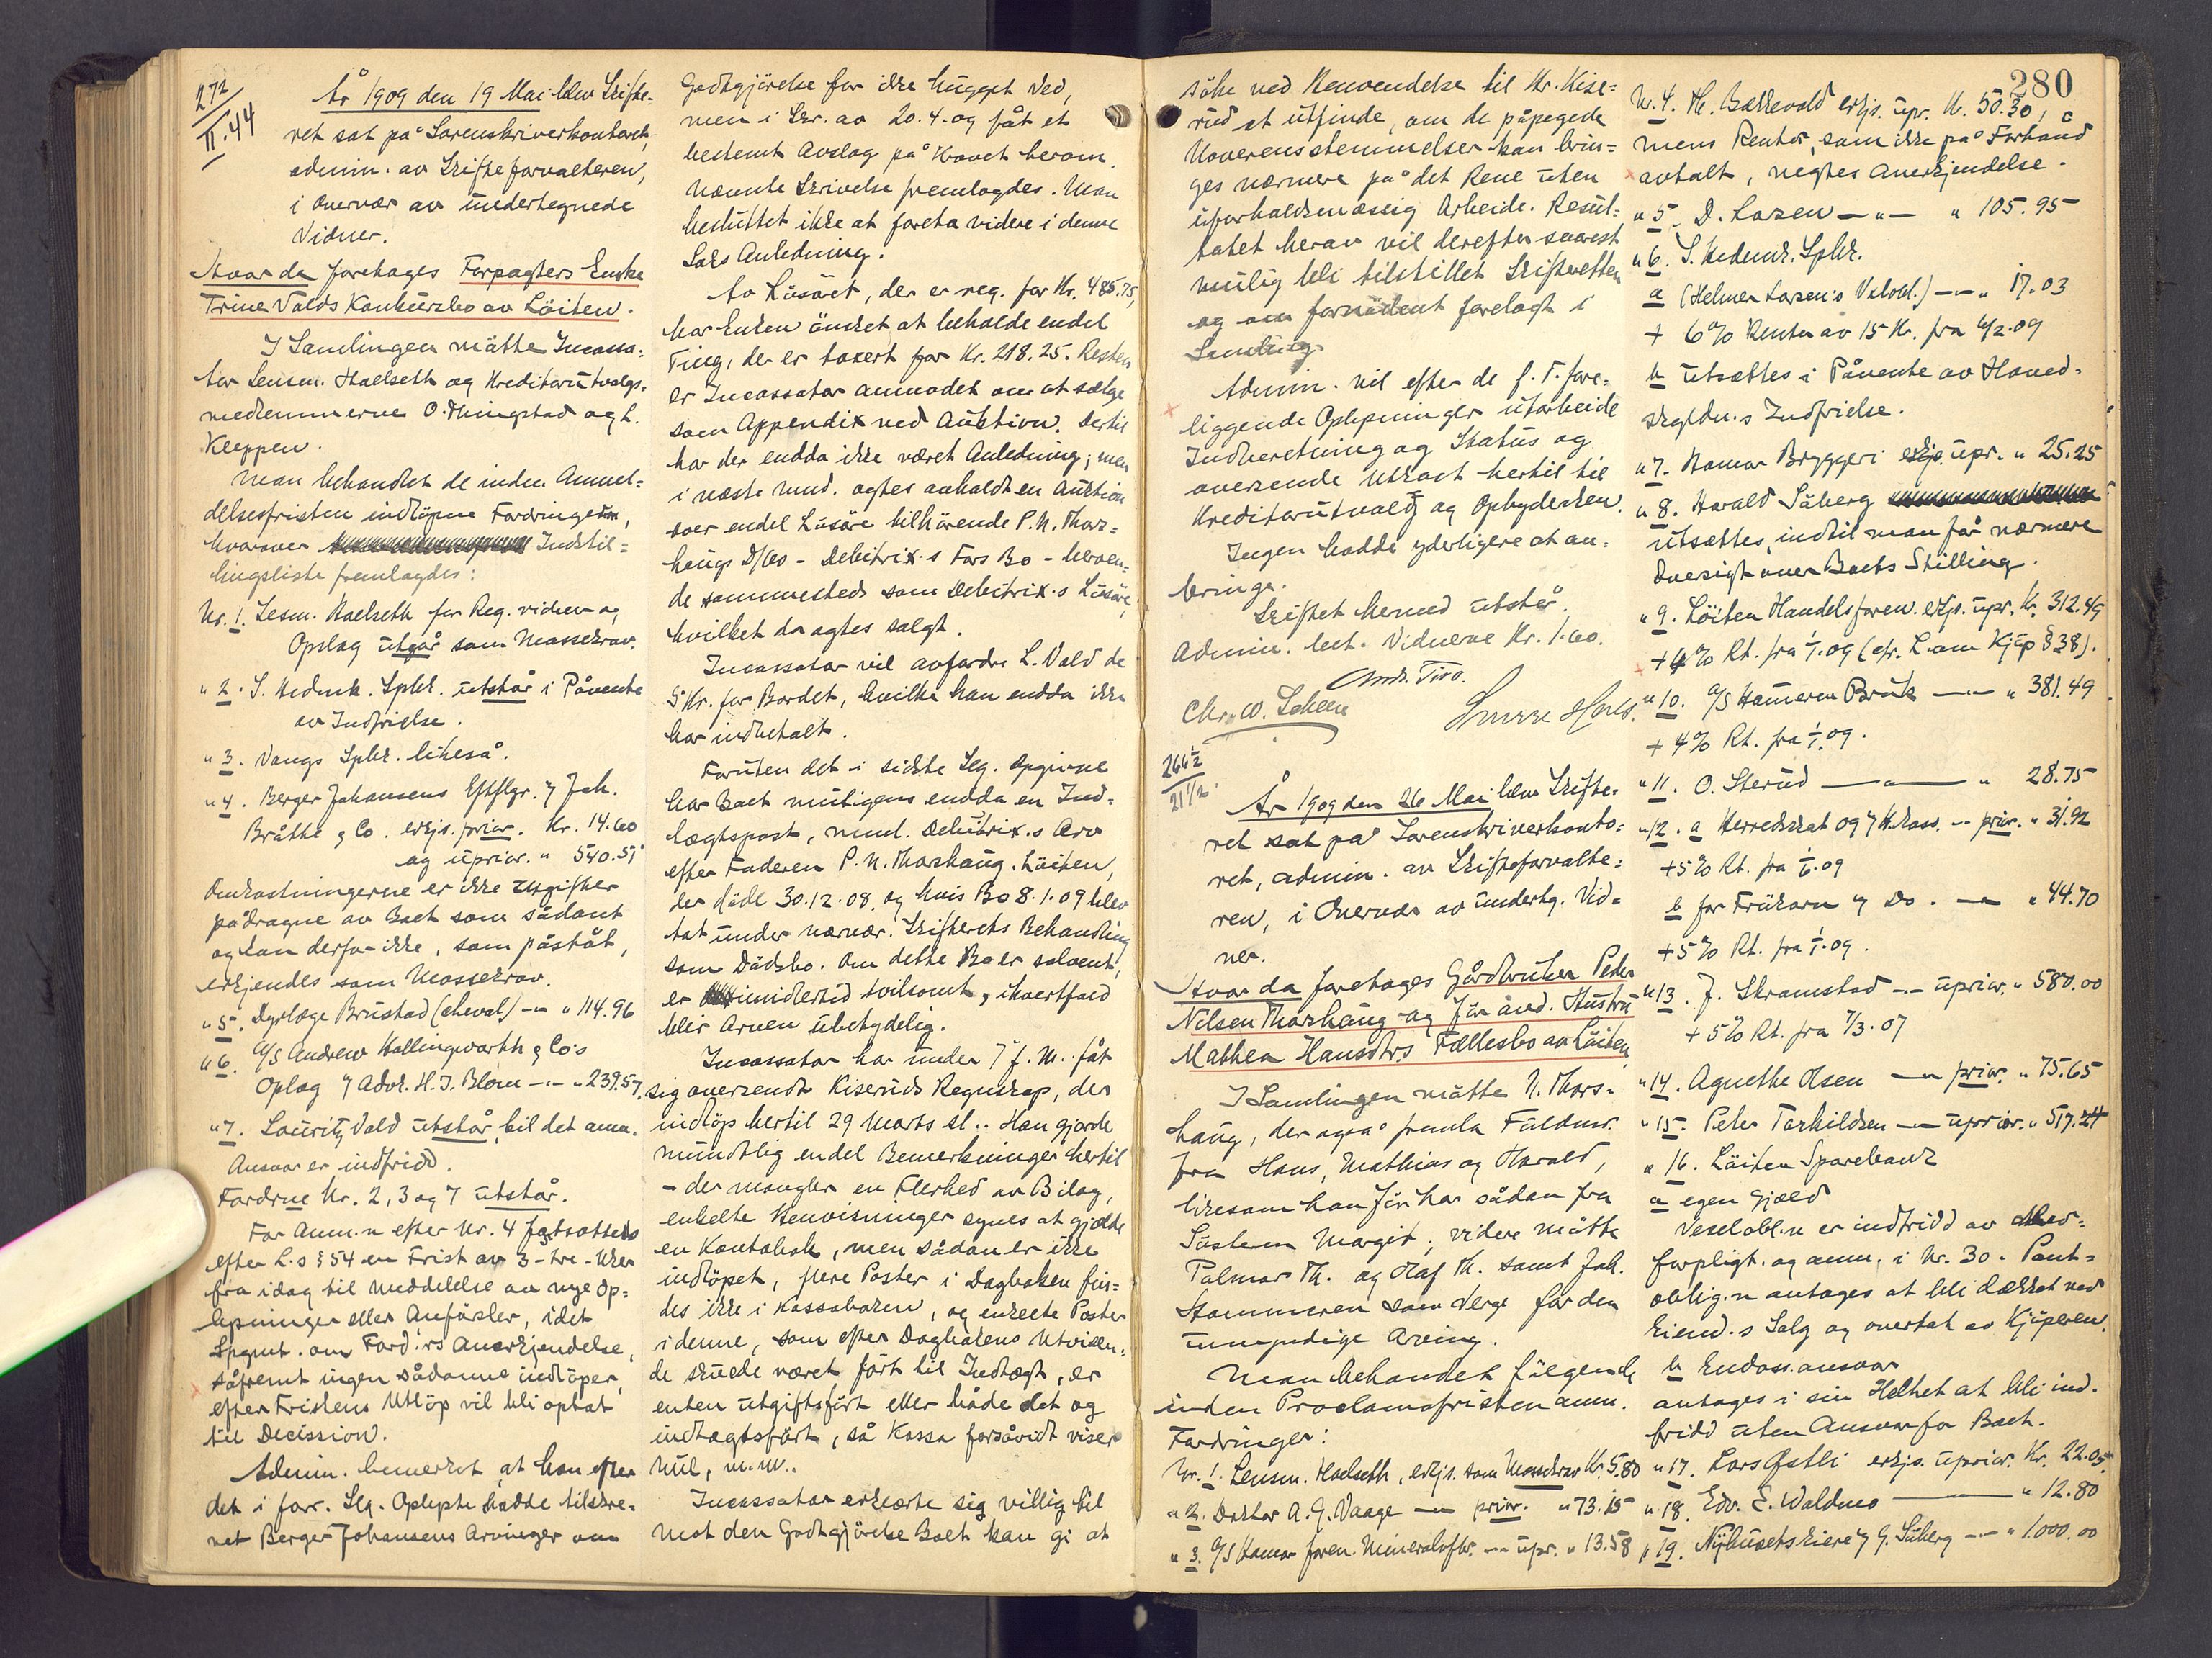 272
II.44
År 1909 den 19 Mai blev Skifte-
ret sat på Sorenskriverkontoret,
admin. av Skifteforvalteren,
i Overvær av undertegnede
Vidner.
Hvor da foretages Forpagters Enke
Trine Valds Konkursbo av Löiten.
I Samlingen mötte Incassa-
tor Lensm. Haelseth og Kreditorutvalgs-
medlemmerne O. Thingstad og L.
Kleppen.
Man behandlet de inden Anmel-
delsesfristen indlöpne Fordringer,
hvorover Indstil-
lingsliste fremlagdes:
Nr. 1. Lesm. Haelseth for Reg. vidner og
Opslag utgår som Massekrav.
" 2. S. Hedmk. Spbk. utstår i Påvente
av Indfrielse.
" 3. Vangs Spbk. likeså.
" 4. Berger Johansens Eftflgr. v/ Joh.
Bråthe & Co. erkjs. prior. Kr. 14.60
og uprior. " 540.51
Omkostningerne er ikke Utgifter
pådragne av Boet som sådant
og kan derfor ikke, som påståt,
erkjendes som Massekrav.
" 5. Dyrlæge Brustad (cheval) — " — " 114.96
" 6. A/S Andrew Hollingworth & Co's
Oplag v/ Advk. H. J. Blom — " — " 239.57.
" 7. Lauritz Vald utstår, til det anm.
Ansvar er indfridd.
Fordrne Nr. 2, 3 og 7 utstår.
For Anm.n efter Nr. 4 fastsattes
efter L.s § 54 en Frist av 3 - tre - Uker
fra idag til Meddelelse av nye Op-
lysninger eller Anförsler, idet
Spgmt. om Ford.rs Anerkjendelse,
såfremt ingen sådanne indlöper,
efter Fristens Utlöp vil bli optat
til Decission.
Admin. bemerket, at han efter
det i forr. Slg. Oplyste hadde tilskre-
vet Berger Johansens Arvinger om
Godtgjörelse for ikke hugget Ved,
men i Skr. av 20.4. og fåt et
bestemt Avslag på Kravet herom.
Nævnte Skrivelse fremlagdes. Man
besluttet ikke at foreta videre i denne
Saks Anledning.
Av Lösöret, der er reg. for Kr. 485.75,
har Enken önsket at beholde endel
Ting, der er taxert for Kr. 218.25. Resten
er Incassator anmodet om at sælge
som Appendix ved Auktion. Dertil
har der endda ikke været Anledning; men
i næste Mnd. agtes avholdt en Auktion
over endel Lösöre tilhörende P. N. Thors-
haugs D/bo - Debitrix.s Fars Bo - beroen-
de sammesteds som Debitrix.s Lösöre,
hvilket da agtes solgt.
Incassator vil avfordre L. Vald de
5 Kr. for Bordet, hvilke han endda ikke
har indbetalt.
Foruten det i sidste Slg. opgivne
har Boet muligens endda en Ind-
tægtspost, nml. Debitrix.s Arv
efter Faderen P. N. Thorshaug. Löiten,
der döde 30.12.08. og hvis Bo 8.1.09 blev
tat under nærvær. Skifterets Behandling
som Dödsbo. Om dette Bo er solvent,
er imidlertid tvilsomt, ihvertfald
blir Arven ubetydelig.
Incassator har under 7 f. M. fåt
sig oversendt Kiseruds Regnskap, der
indlöp hertil 29 Marts sl.. Han gjorde
mundtlig endel Bemerkninger hertil
- der mangler en Flerhed av Bilag,
enkelte Henvisninger synes at gjelde
en Kontabok, men sådan er ikke
indlöpet, flere Poster i Dagboken fin-
des ikke i Kassaboken, og enkelte Poster
i denne, som efter Dagbokens Utvisen-
de skulde været fört til Indtægt, er
enten utgiftsfört eller både det og
indtægtsfört, så Kassa forsåvidt viser
Nul, m.m..
Incassator erklærte sig villig til
mot den Godtgjörelse Boet kan gi at
söke ved Henvendelse til Hr. Kise-
rud at utfinde, om de påpegede
Uoverensstemmelser kan brin-
ges nærmere på det Rene uten
uforholdsmæssig Arbeide. Resul-
tatet herav vil derefter snarest
mulig bli tilstillet Skifteretten
og om fornödent forelagt i
Samling.
Admin. vil efter de f. T. fore-
liggende Oplysninger utarbeide
Indberetning og Status og
oversende Utkast hertil til
Kreditorutvalg og Opbyderen.
Ingen hadde yderligere at an-
bringe.
Skiftet hermed utstår.
Admin. bet. Vidnerne Kr. 1.60.
Andr. Tiro.
Chr. W. Scheen
266½
21½.
År 1909 den 26 Mai blev Skifte-
ret sat på Sorenskriverkonto-
ret, admin. av Skifteforvalte-
ren, i Overvær av undertg. Vid-
ner.
Hvor da foretages Gårdbruker Peder
Nilsen Thorshaug og för avd. Hustru
Mathea Hansdtrs Fællesbo av Löiten,
I Samlingen mötte N. Thors-
haug, der også fremla Fuldmr.
fra Hans, Mathias og Harald,
likesom han för har sådan fra
Söstern Margit; videre mötte
Palmar Th. og Olaf Th. samt Joh.
Stommeren som Verge for den
umyndige Arving.
Man behandlet fölgende
inden Proclamafristen anm.
Fordringer:
Nr. 1. Lensm. Haelseth, erkjs. som Massekrav Kr. 5.80
" 2. Doktor A. G. Vaage — " prior. " 73.15
" 3. A/S Hamar foren. Mineralvfbr. — " upr. " 13.58
280
Nr. 4. M. Bækkevold erkjs. upr. Kr. 50.30,
mens Renter, som ikke på Forhånd
avtalt, negtes Anerkjendelse.
" 5. D. Larsen — " — " 105.95
" 6. S. Hedmk. Spbk.
a (Helmer Larsen's Vvlobl.) — " — " 17.03
+ 6% Renter av 15 Kr. fra 6/2.09
b utsættes i Påvente av Hoved-
skyldn.s Indfrielse.
" 7. Hamar Bryggeri erkjs. upr. " 25.25
" 8. Harald Säberg
utsættes, indtil man får nærmere
Oversigt over Boets Stilling.
" 9. Löiten Handelsforen. erkjs. upr. Kr. 312.49
+ 4% Rt. fra 1/1.09 (cfr. L. om Kjöp § 38).
" 10. A/S Hammeren Bruk — " — " 381.49
+ 4% Rt. fra 1/1.09.
" 11. O. Sterud — " — " 28.75
" 12. a Herredskat og v/ H.kass. — " prior. " 31.92
+ 5% Rt. fra 1/1.09
b for Frükorn v/ Do. — " " 44.70
+ 5% Rt. fra 1/1.09.
" 13. J. Skramstad — " — uprior. " 580.00
+ 5% Rt. fra 1/3.07
" 14. Agnethe Olsen — " prior. " 75.65
" 15. Peter Torkildsen — " uprior. " 517.24
" 16. Löiten Sparebank
a egen Gjæld
Vexelobl.n er indfridd av Med-
forpligt. og anm. i Nr. 30. Pant-
oblig.n antages at bli dækket ved
Eiend.s Salg og overtat av Kjöperen.
b Endoss.ansvar
antages i sin Helhet at bli ind-
fridd uten Ansvar for Boet.
" 17. Lars Østli erkjs. uprior. Kr. 22.05.
" 18. Edv. E. Waldmo — " 12.80
" 19. Nyhusets Eiere v/ G. Säberg — " — " 1.000.00